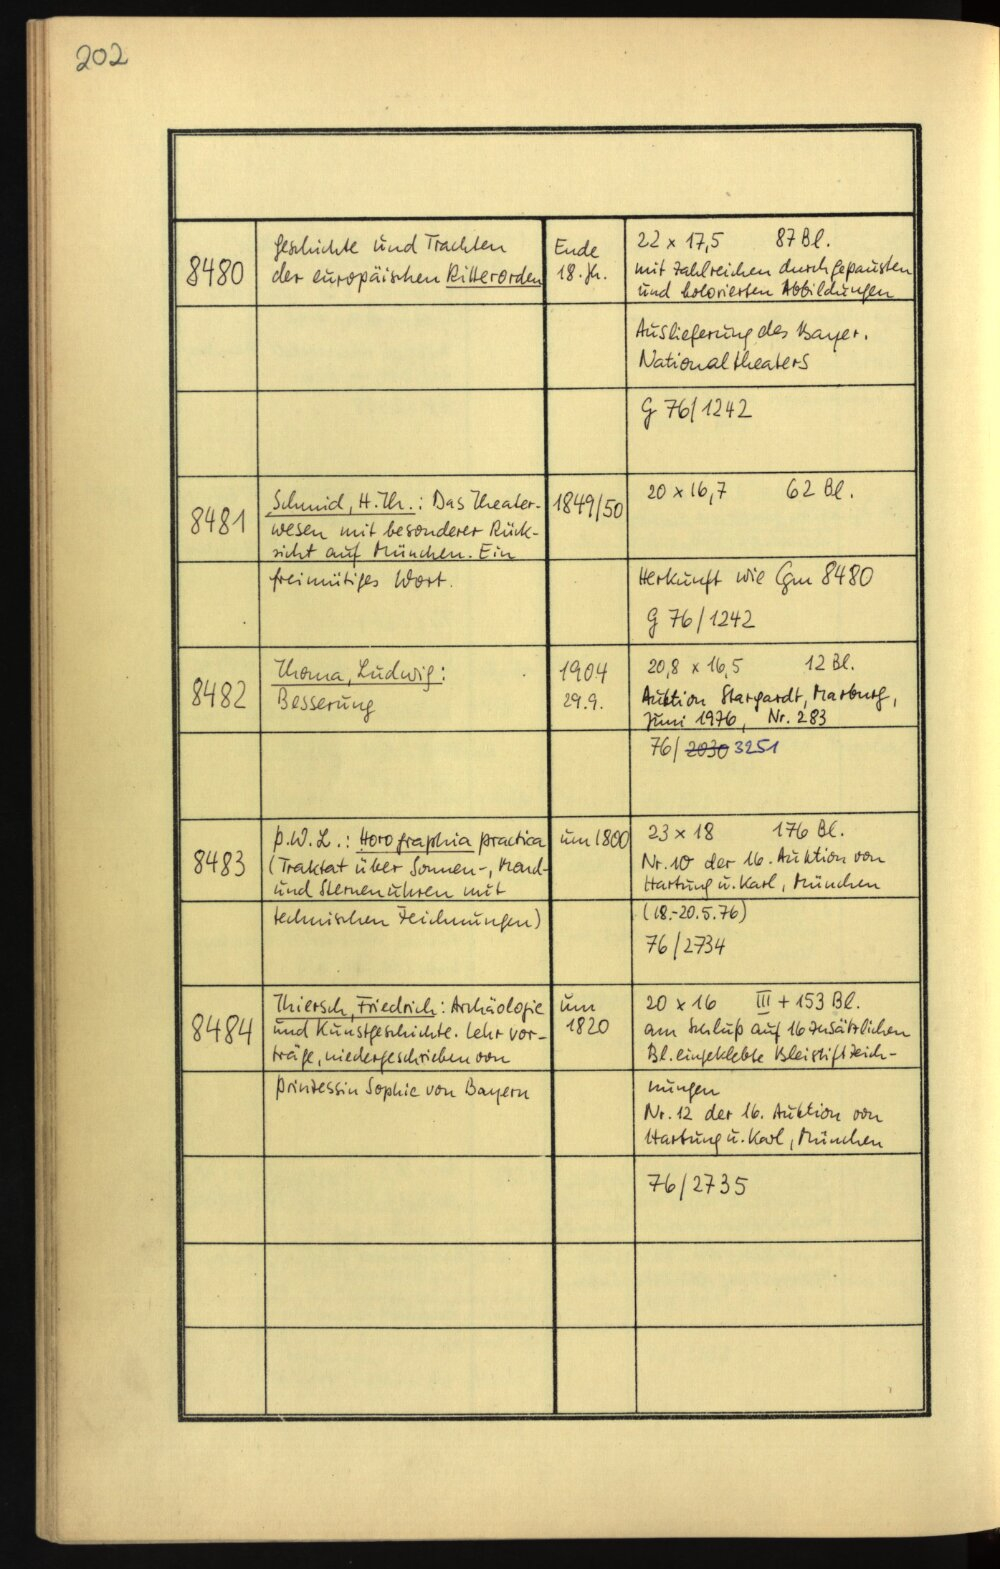 202
8480
Geschichte und Trachten
der europäischen Ritterorden
Ende
18. Jh.
22 x 17,5 87 Bl.
mit zahlreichen durchgepausten
und kolorierten Abbildungen
Auslieferung des Bayer.
Nationaltheaters
G 76/1242
8481
Schmid, H. Th.: Das Theater-
wesen mit besonderer Rück-
sicht auf München. Ein
freimütiges Wort.
1849/50
20 x 16,7 62 Bl.
Herkunft wie Cgm 8480
G 76/1242
8482
Thoma, Ludwig:
Besserung
1904
29.9.
20,8 x 16,5 12 Bl.
Auktion Stargardt, Marburg,
Juni 1976, Nr. 283
76/ 2030 3251
8483
P.W.L.: Horographia practica
(Traktat über Sonnen-, Mond-
und Sternenuhren mit
technischen Zeichnungen)
um 1800
23 x 18 176 Bl.
Nr. 10 der 16. Auktion von
Hartung u. Karl, München
(18.-20.5.76)
76/2734
8484
Thiersch, Friedrich: Archäologie
und Kunstgeschichte. Lehrvor-
träge, niedergeschrieben von
Prinzessin Sophie von Bayern
um
1820
20 x 16 III + 153 Bl.
am Schluß auf 16 zusätzlichen
Bl. eingeklebte Bleistiftzeich-
nungen
Nr. 12 der 16. Auktion von
Hartung u. Karl, München
76/2735